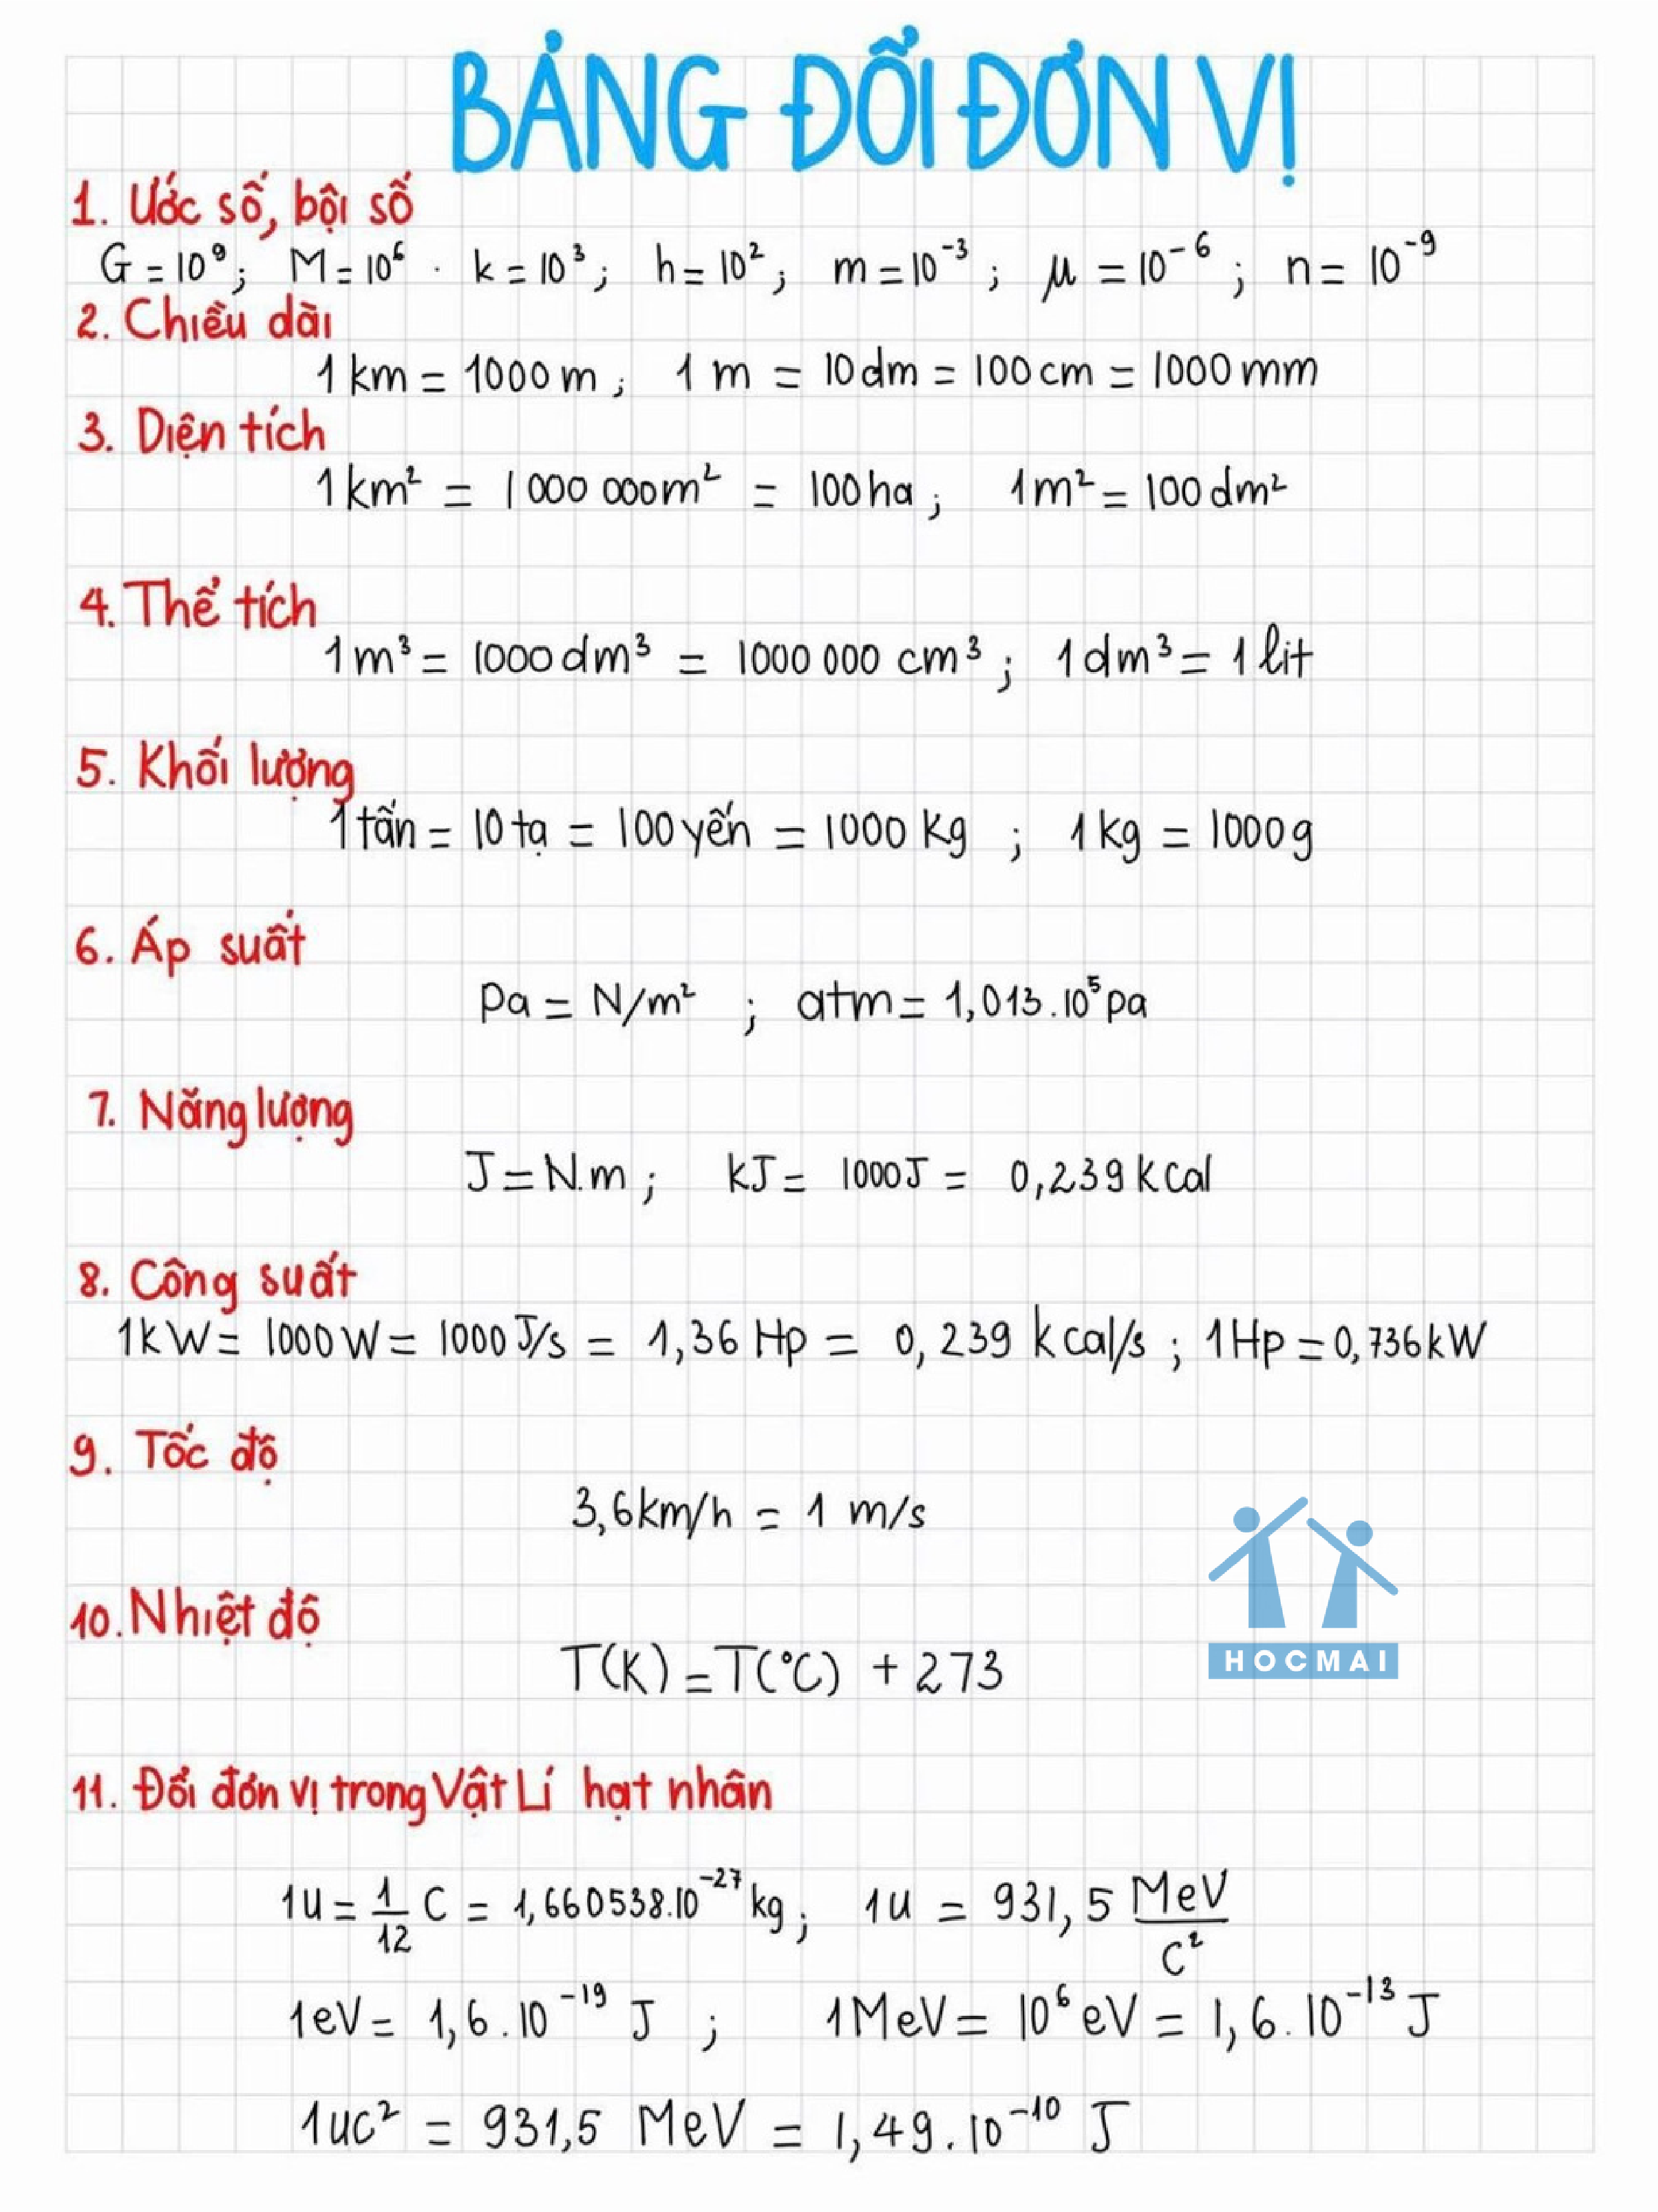 BẢNG ĐỔI ĐƠN VỊ
1. Ước số, bội số
G = 10⁹; M = 10⁶ . k = 10³; h = 10²; m = 10⁻³; µ = 10⁻⁶; n = 10⁻⁹
2. Chiều dài
1 km = 1000 m; 1 m = 10 dm = 100 cm = 1000 mm
3. Diện tích
1 km² = 1 000 000 m² = 100 ha; 1 m² = 100 dm²
4. Thể tích
1 m³ = 1000 dm³ = 1000 000 cm³; 1 dm³ = 1 lit
5. Khối lượng
1 tấn = 10 tạ = 100 yến = 1000 Kg; 1 kg = 1000 g
6. Áp suất
Pa = N/m²; atm = 1,013.10⁵ pa
7. Năng lượng
J = N.m; kJ = 1000 J = 0,239 kCal
8. Công suất
1 kW = 1000 W = 1000 J/s = 1,36 Hp = 0,239 kcal/s; 1 Hp = 0,736 kW
9. Tốc độ
3,6 km/h = 1 m/s
HOCMAI
10. Nhiệt độ
T(K) = T(°C) + 273
11. Đổi đơn vị trong Vật Lí hạt nhân
1u = 1/12 C = 1,660538.10⁻²⁷ kg; 1u = 931,5 MeV/C²
1eV = 1,6.10⁻¹⁹ J; 1MeV = 10⁶ eV = 1,6.10⁻¹³ J
1uc² = 931,5 MeV = 1,49.10⁻¹⁰ J